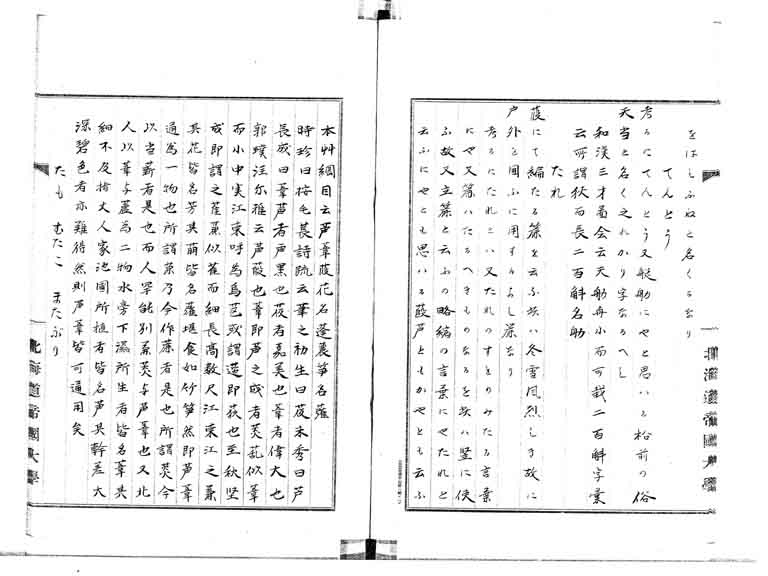 をはしふねと名くるなり
てんとう
考るにてんとう又艇舫にやと思いる松前の俗
天当と名く之れかり字なるへし
和漢三才畗会云天舫舟小而可載二百斛字彙
云所謂狄而長二百斛名舫
たれ
葭にて編たる簾を云ふ茲ハ冬雪風烈しき故に
戸外を囲ふに用するよし簾なり
考るにたれとハ又たれのすとのみたる言葉
にや又簾ハたるへきものなるを茲ハ竪に使
ふ故又立簾と云ふの略縮の言葉にやたれと
云ふにやとも思いる葭戸ともかやとも云ふ
本艸綱目云芦葦葭花名蓬蕽笋名虇
時珍曰按毛萇詩疏云葦之初生曰葭未秀曰芦
長成曰葦葦者偉大也芦者戸黒也葭者嘉美也
郭璞注尓雅云芦葭也葦即芦之成者菼薍似葦
而小中実江東呼為烏蓲或謂薍即荻也至秋堅
成即謂之萑蒹似萑而細長高数尺江東江之蒹
其花皆名芳其萌皆名虇堪食如竹笋然即芦葦
通為一物也所謂蒹乃今作蒹者是也所謂菼今
以当薪者是也而人罕能別蒹菼与芦葦也又北
人以葦与蘆為二物水旁下濕所生者皆名葦其
細不及指丈人家池圃所植者皆名芦其幹差大
深碧色者亦難得然則芦葦皆可通用矣
たも むたこ またぶり
北海道帝國大學
北海道帝國大學